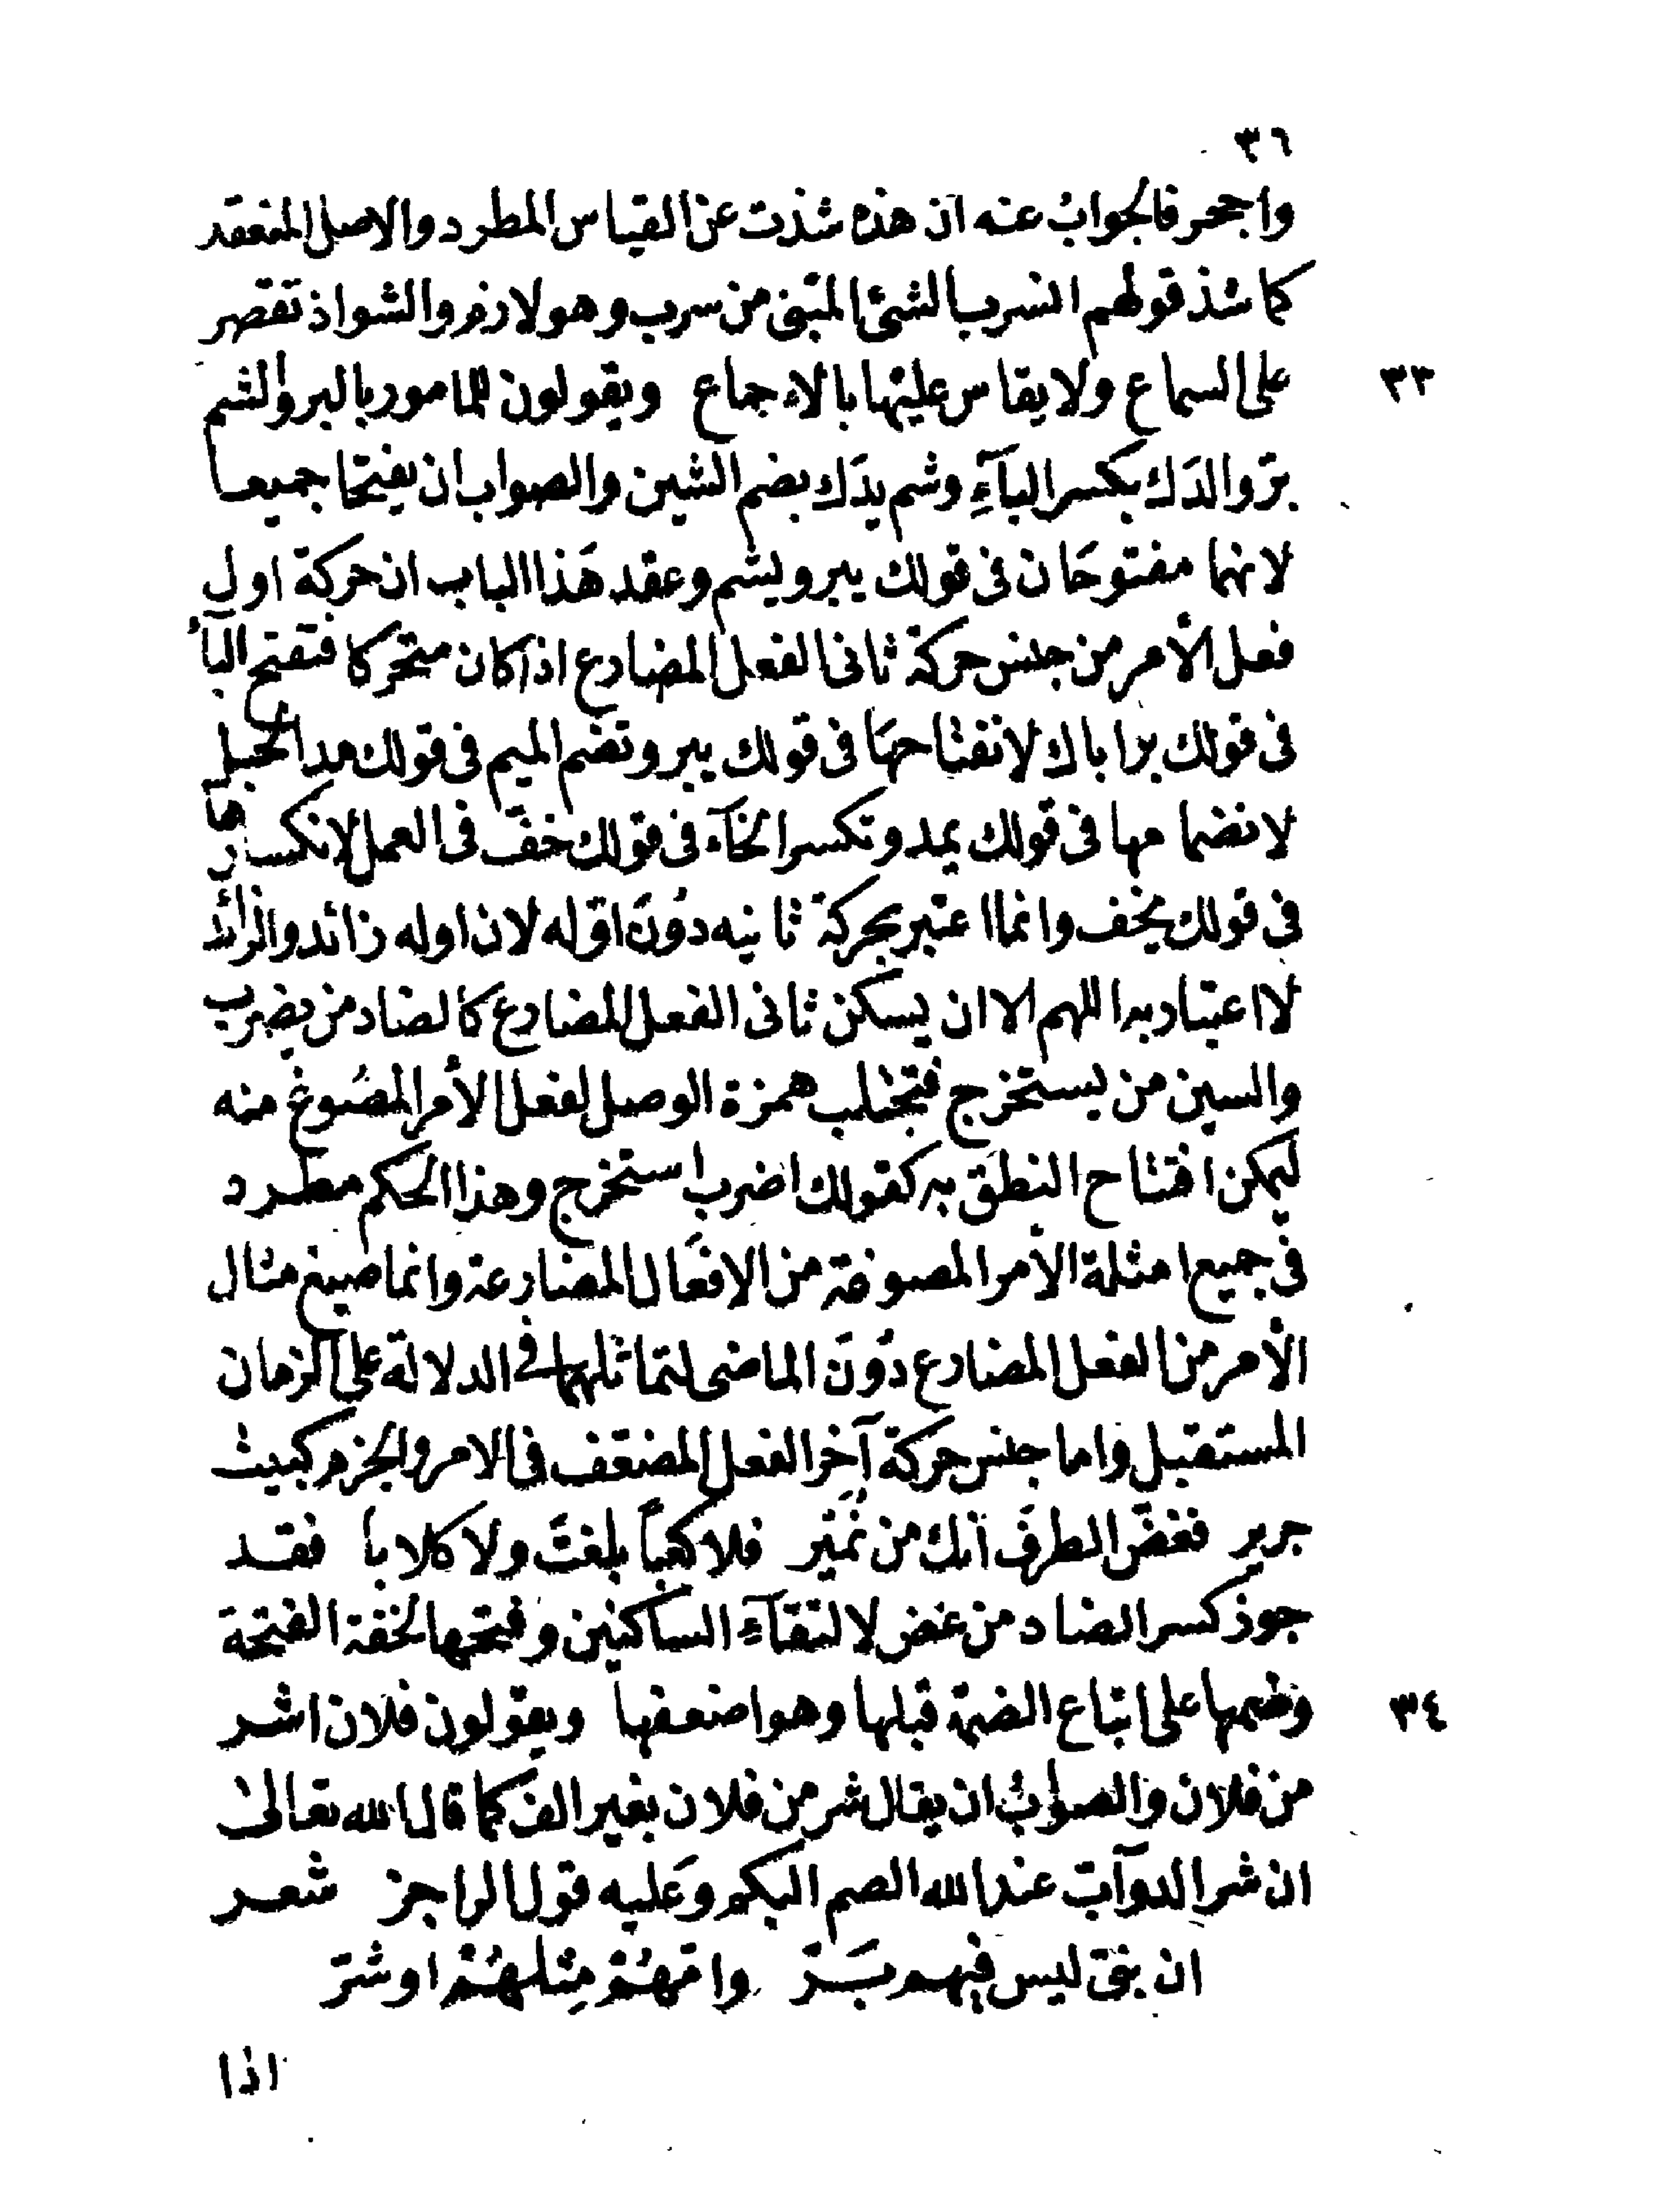 ٣٦
واجحر فالجوابُ عنه ان هذه شذت عن القياس المطرد والاصل المنعقد
كما شذ قولهم انسرب الشئ المتبنى من سرب وهو لازم والشواذ تقصر
على السماع ولا يقاس عليها بالاءجماع ويقولون للمامور بالبر والشم
٣٣
برّ والدَك بكسر البآءِ وشم يدَك بضم الشين والصواب ان يفتحا جميعا
لانهما مفتوحَان فى قولك يبر ويشم وعقد هَذا الباب ان حركة اول
فعل الأمر من جنس حركة ثانى الفعل المضارع اذا كان متحركا فتفتح البآءُ
فى قولك بر اباك لانفتاحهَا فى قولك يبر وتضم الميم فى قولك مد الحبل
لانضمامها فى قولك يمد وتكسر الخآء فى قولك خفّ فى العمل لانكسارها
فى قولك يخف وانما اعتبر بحركة ثانيه دوُنَ اوّله لان اوله زائد والزائد
لا اعتبار به اللهم الا ان يسكن ثانى الفعل المضارع كالضاد من يضرب
والسين من يستخرج فتجتلب همزة الوصل لفعل الأمر المصُوغ منه
ليمكن افتتاح النطق به كقولك اضرب استخرج وهذا الحكم مطرد
فى جميع امثلة الأمر المصوغة من الافعَال المضارعة وانما صيغ مثال
الأمر من الفعل المضارع دوُنَ الماضى لتماثلهما فى الدلالة على الزمان
المستقبل واما جنس حركة آخر الفعل المضعّف فى الامر والجزم كبيت
جرير فغضّ الطرفَ انّك من نُمَيْر فلا كعباً بلغتَ ولا كلابا فقد
جوز كسر الضاد من غض لالتقآءِ الساكنين وفتحها لخفة الفتحة
وضمها على اتباع الضمة قبلها وهو اضعفها ويقولون فلان اشر
٣٤
من فلان والصوابُ ان يقال شر من فلان بغير الف كما قال الله تعالىٰ
ان شر الدوآبّ عند الله الصم البكم وعَليه قول الراجز شعر
ان بنىّ ليس فيهم بَرّ وامّهُمْ مِثلهُمْ او شرّ
اذا